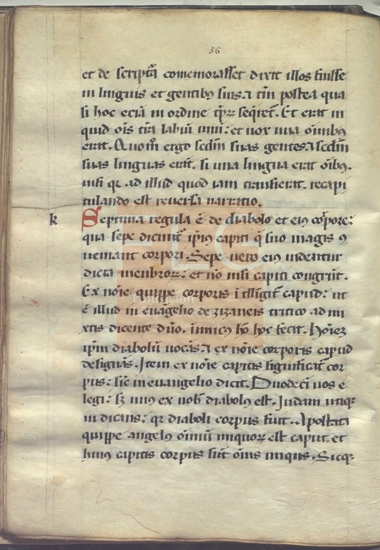 56
et de scriptã comemorasset dixit illos fuisse
in linguis et gentibus suis: a tñ postea qua
si hoc eciã in ordine
Et erit in
quid oĩs tr̃a labiũ unũ: et uox una oĩnibus
erat. Quom̃ ergo scdm̃ suas gentes: a scdm̃
suas linguas erãt. si una lingua erat oĩbus.
nisi qr̃ ad illud quod iam transierat. recapi
tulando est reversa narratio.
k Septima regula ẽ de diabolo et eius corpore:
qua sepe dicunt̃ capiti q̃ suo magis
ueniant corpori. Sepe uero eius uideantur
dicta menbroꝝ: et nõ nisi capiti congruũt.
Ex nõie quippe corporis ĩtelligit̃ capud: ut
ẽ illud in euãgelio de zizaneis tritico ad mi
xtis dicente dño. inimicus hõ hoc fecit. Hoĩem
ipm̃ diabolũ uocãs: a ex nõie corporis capud
designãs. Item ex nõie capitis significat̃ cor
pus: sic in euangelio dicit. Duodecĩ uos e
legi: sz unus ex uob̃ diabolus est. Judam utiq̃
indicans: qr̃ diaboli corpus fuit. Apostata
quippe angelus oĩniũ iniquoꝝ est caput. et
huius capitis corpus sũt oĩns iniqui. Sicq̃